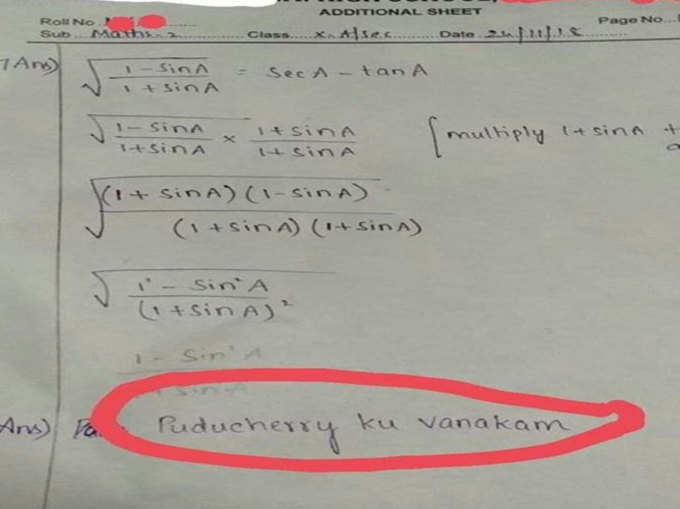 ADDITIONAL SHEET
Roll No
Page No...
Sub Maths-2 Class X-A/sec Date 24/11/18
Ans) √(1-sinA / 1+sinA) = secA - tanA
√(1-sinA / 1+sinA × 1+sinA / 1+sinA) [multiply 1+sinA
√((1+sinA)(1-sinA) / (1+sinA)(1+sinA))
√(1² - sin²A / (1+sinA)²)
1 - sin²A
+ sinA
Ans) Puducherry ku vanakam